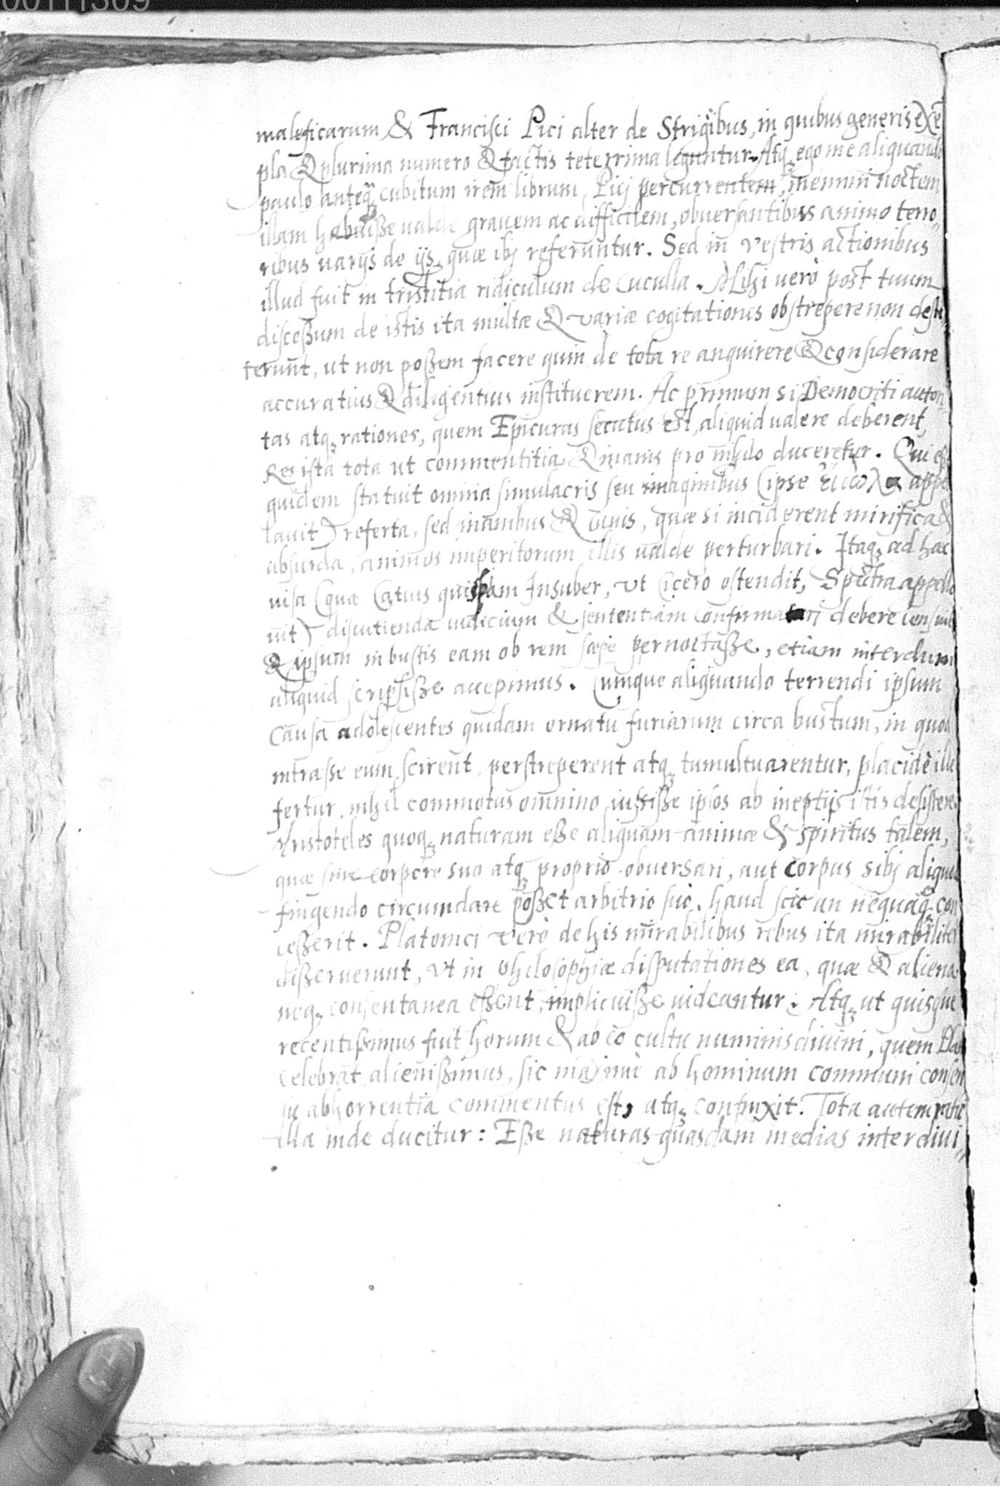 00111309
maleficarum & Francisci Pici alter de Strigibus, in quibus generis exē
pla & plurima numero & factis teterrima leguntur. Atq; ego me aliquando
paulo anteq̃ cubitum irem librum Pici percurrentem, memini noctem
illam habuisse valde grauem ac difficilem, obuersantibus animo terro
ribus varijs de ijs, quæ ibi referuntur. Sed in vestris actionibus
illud fuit in tristitia ridiculum de cuculla. Mihi verò post tuum
discessum de istis ita multæ & variæ cogitationes obstrepere non desti
terunt, ut non possem facere quin de tota re anquirere & considerare
accuratius & diligentius instituerem. Ac primum si Democriti autori
tas atq; rationes, quem Epicurus secutus est, aliquid ualere deberent,
Res ista tota ut commentitia & inanis pro nihilo duceretur. Qui
quidem statuit omnia simulacris seu imaginibus (ipse εἴδωλα appel
lauit) referta, sed inanibus & , quæ si inciderent mirifica &
absurda, animos imperitorum illis valde perturbari. Itaq; ad hæc
uisa (quæ Catius quispiam Insuber, ut Cicero ostendit, Spectra appella
uit) discutienda iudicium & sententiam confirmari debere censuit
& ipsum in bustis eam ob rem sæpe pernoctasse, etiam interdum
aliquid scripsisse accepimus. Cumque aliquando terrendi ipsum
causa adolescentes quidam ornatu furiarum circa bustum, in quod
intrasse eum scirent, perstreperent atq; tumultuarentur, placidè ille
fertur, nihil commotus omnino iussisse ipsos ab ineptijs istis desistere
Aristoteles quoq; naturam esse aliquam animæ & spiritus talem,
quæ sine corpore suo atq; proprio obuersari, aut corpus sibi aliquod
fingendo circumdare posset arbitrio suo, haud scio an nequaq̃ con
cesserit. Platonici verò de his mirabilibus rebus ita mirabiliter
disseruerunt, ut in philosophiæ disputationes ea, quæ & aliena
neq; consentanea essent, implicuisse uideantur. Atq; ut quisque
recentissimus fuit horum & ab eo cultu numinis diuini, quem
celebrat alienissimus, sic maximè ab hominum communi consen
su abhorrentia commentus est, atq; confinxit. Tota autem ratio
illa inde ducitur: Esse naturas quasdam medias inter diui